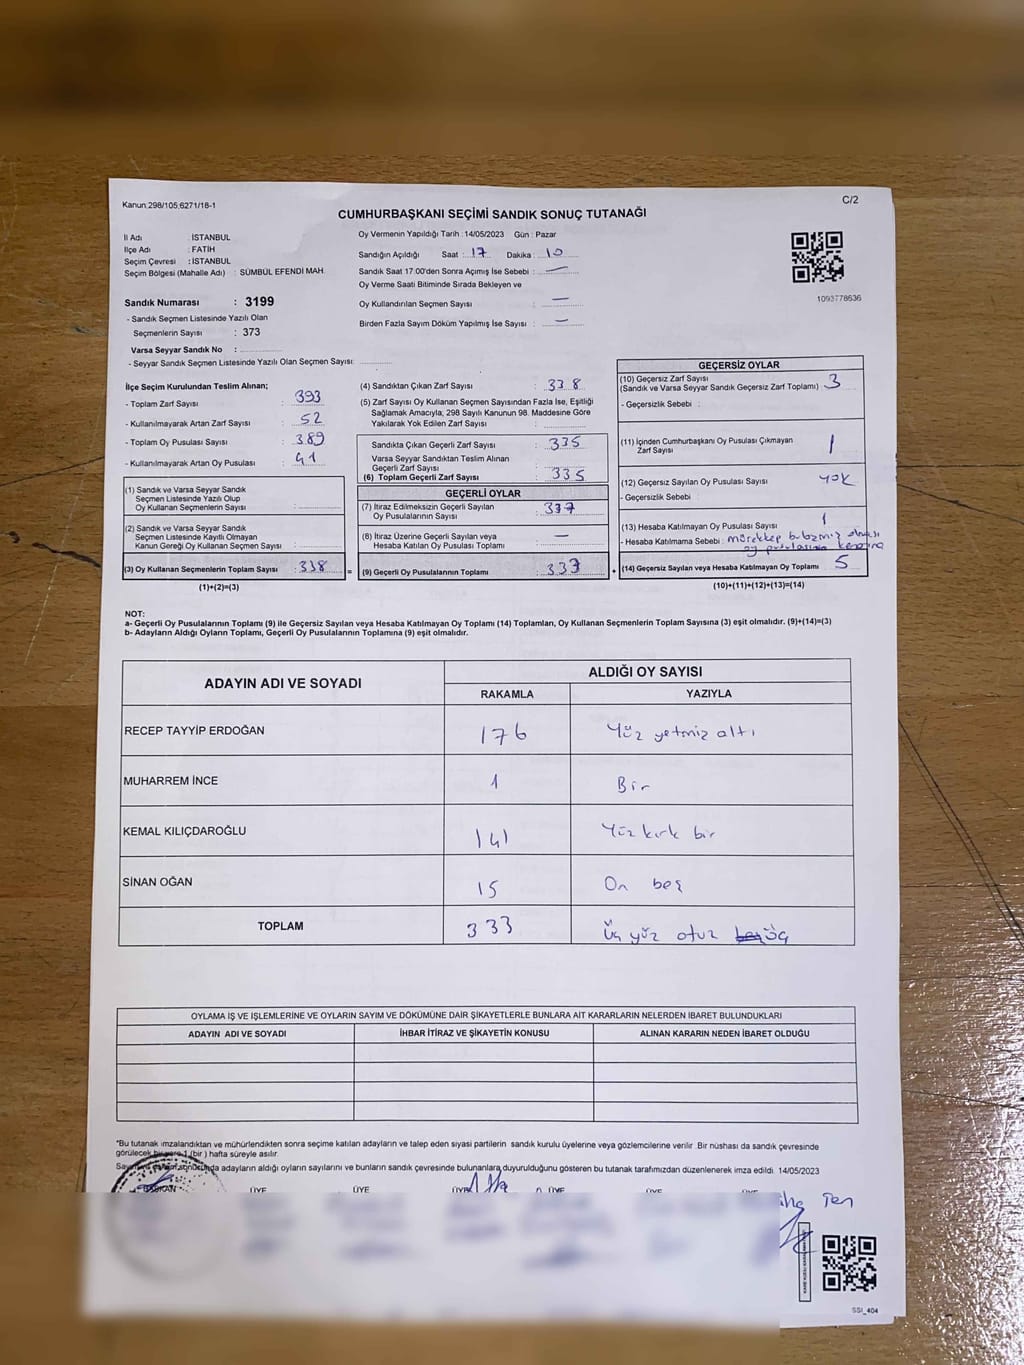 Kanun:298/105;6271/18-1
C/2
CUMHURBAŞKANI SEÇİMİ SANDIK SONUÇ TUTANAĞI
İl Adı : İSTANBUL
İlçe Adı : FATİH
Seçim Çevresi : İSTANBUL
Seçim Bölgesi (Mahalle Adı) : SÜMBÜL EFENDİ MAH.
Sandık Numarası : 3199
- Sandık Seçmen Listesinde Yazılı Olan
Seçmenlerin Sayısı : 373
Varsa Seyyar Sandık No :
- Seyyar Sandık Seçmen Listesinde Yazılı Olan Seçmen Sayısı:
Oy Vermenin Yapıldığı Tarih :14/05/2023 Gün : Pazar
Sandığın Açıldığı Saat : 17 Dakika : 10
Sandık Saat 17:00'den Sonra Açımış İse Sebebi : —
Oy Verme Saati Bitiminde Sırada Bekleyen ve
Oy Kullandırılan Seçmen Sayısı : —
Birden Fazla Sayım Döküm Yapılmış İse Sayısı : —
1093778636
İlçe Seçim Kurulundan Teslim Alınan;
- Toplam Zarf Sayısı : 393
- Kullanılmayarak Artan Zarf Sayısı : 52
- Toplam Oy Pusulası Sayısı : 389
- Kullanılmayarak Artan Oy Pusulası : 41
(1) Sandık ve Varsa Seyyar Sandık
Seçmen Listesinde Yazılı Olup
Oy Kullanan Seçmenlerin Sayısı :
(2) Sandık ve Varsa Seyyar Sandık
Seçmen Listesinde Kayıtlı Olmayan
Kanun Gereği Oy Kullanan Seçmen Sayısı :
(3) Oy Kullanan Seçmenlerin Toplam Sayısı : 338 =
(1)+(2)=(3)
(4) Sandıktan Çıkan Zarf Sayısı : 338
(5) Zarf Sayısı Oy Kullanan Seçmen Sayısından Fazla İse, Eşitliği
Sağlamak Amacıyla; 298 Sayılı Kanunun 98. Maddesine Göre
Yakılarak Yok Edilen Zarf Sayısı :
Sandıkta Çıkan Geçerli Zarf Sayısı : 335
Varsa Seyyar Sandıktan Teslim Alınan
Geçerli Zarf Sayısı :
(6) Toplam Geçerli Zarf Sayısı : 335
GEÇERLİ OYLAR
(7) İtiraz Edilmeksizin Geçerli Sayılan
Oy Pusulalarının Sayısı :
(8) İtiraz Üzerine Geçerli Sayılan veya
Hesaba Katılan Oy Pusulası Toplamı : —
(9) Geçerli Oy Pusulalarının Toplamı : 333 +
GEÇERSİZ OYLAR
(10) Geçersiz Zarf Sayısı : 3
(Sandık ve Varsa Seyyar Sandık Geçersiz Zarf Toplamı)
- Geçersizlik Sebebi :
(11) İçinden Cumhurbaşkanı Oy Pusulası Çıkmayan
Zarf Sayısı : 1
(12) Geçersiz Sayılan Oy Pusulası Sayısı : YOK
- Geçersizlik Sebebi
(13) Hesaba Katılmayan Oy Pusulası Sayısı : 1
- Hesaba Katılmama Sebebi : mürekkep
oy pusulasının
(14) Geçersiz Sayılan veya Hesaba Katılmayan Oy Toplamı : 5
(10)+(11)+(12)+(13)=(14)
NOT:
a- Geçerli Oy Pusulalarının Toplamı (9) ile Geçersiz Sayılan veya Hesaba Katılmayan Oy Toplamı (14) Toplamları, Oy Kullanan Seçmenlerin Toplam Sayısına (3) eşit olmalıdır. (9)+(14)=(3)
b- Adayların Aldığı Oyların Toplamı, Geçerli Oy Pusulalarının Toplamına (9) eşit olmalıdır.
ADAYIN ADI VE SOYADI
ALDIĞI OY SAYISI
RAKAMLA YAZIYLA
RECEP TAYYİP ERDOĞAN 176 Yüz yetmiz altı
MUHARREM İNCE 1 Bir
KEMAL KILIÇDAROĞLU 141 Yüz kırk bir
SİNAN OĞAN 15 On beş
TOPLAM 333 Üç yüz otuz beş üç
OYLAMA İŞ VE İŞLEMLERİNE VE OYLARIN SAYIM VE DÖKÜMÜNE DAİR ŞİKAYETLERLE BUNLARA AİT KARARLARIN NELERDEN İBARET BULUNDUKLARI
ADAYIN ADI VE SOYADI İHBAR İTİRAZ VE ŞİKAYETİN KONUSU ALINAN KARARIN NEDEN İBARET OLDUĞU
*Bu tutanak imzalandıktan ve mühürlendikten sonra seçime katılan adayların ve talep eden siyasi partilerin sandık kurulu üyelerine veya gözlemcilerine verilir. Bir nüshası da sandık çevresinde
görülecek bir yere 1 (bir) hafta süreyle asılır.
sonucunda adayların aldığı oyların sayılarını ve bunların sandık çevresinde bulunanlara duyurulduğunu gösteren bu tutanak tarafımızdan düzenlenerek imza edildi. 14/05/2023
BAŞKAN ÜYE ÜYE ÜYE ÜYE ÜYE ÜYE
SSİ_404